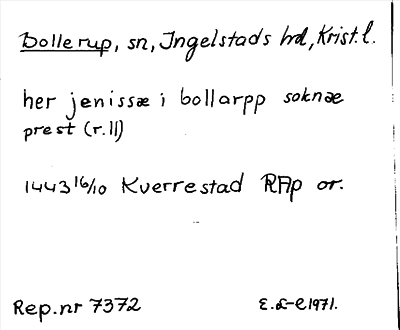 Bollerup, sn, Ingelstads hd, Krist. l.
her jenissæ i bollarpp soknæ
prest (r. 11)
1443 16/10 Kverrestad RAp or.
Rep. nr 7372 E. L-e 1971.